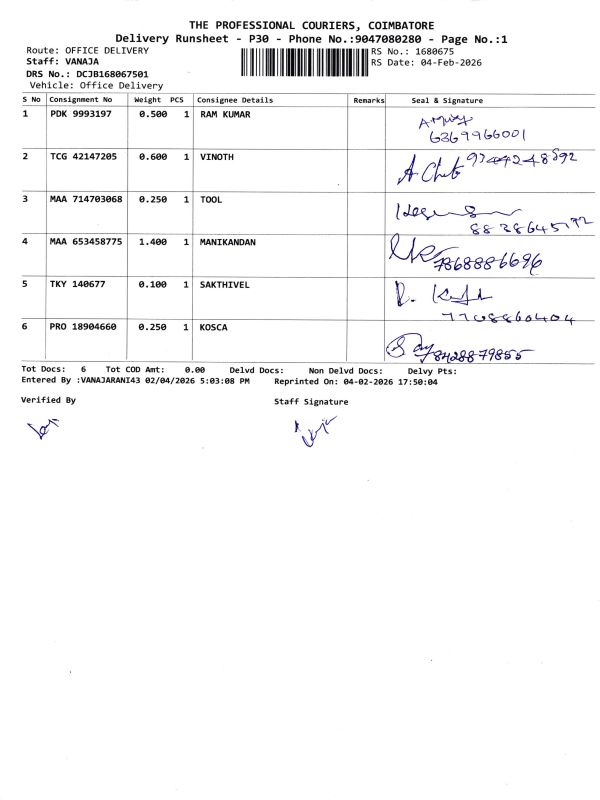 THE PROFESSIONAL COURIERS, COIMBATORE
Delivery Runsheet - P30 - Phone No.:9047080280 - Page No.:1
Route: OFFICE DELIVERY RS No.: 1680675
Staff: VANAJA RS Date: 04-Feb-2026
DRS No.: DCJB168067501
Vehicle: Office Delivery
S No Consignment No Weight PCS Consignee Details Remarks Seal & Signature
1 PDK 9993197 0.500 1 RAM KUMAR
6369966001
2 TCG 42147205 0.600 1 VINOTH
3 MAA 714703068 0.250 1 TOOL
4 MAA 653458775 1.400 1 MANIKANDAN
7868886696
5 TKY 140677 0.100 1 SAKTHIVEL
7708860404
6 PRO 18904660 0.250 1 KOSCA
8428879855
Tot Docs: 6 Tot COD Amt: 0.00 Delvd Docs: Non Delvd Docs: Delvy Pts:
Entered By :VANAJARANI43 02/04/2026 5:03:08 PM Reprinted On: 04-02-2026 17:50:04
Verified By Staff Signature